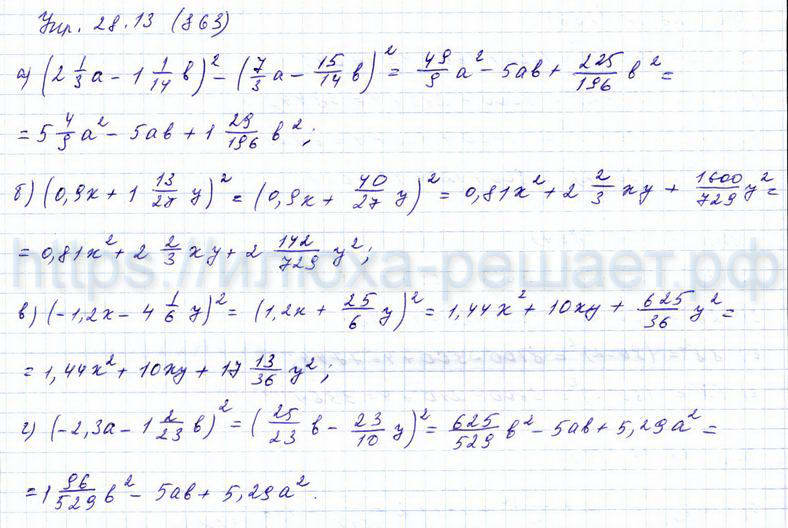 Упр. 28.13 (863)
а) (2 1/3 a - 1 1/14 в)² - (7/3 a - 15/14 в)² = 49/9 a² - 5ав + 225/196 в² =
= 5 4/9 a² - 5ав + 1 29/196 в²;
б) (0,9x + 1 13/27 y)² = (0,9x + 40/27 y)² = 0,81x² + 2 2/3 xy + 1600/729 y² =
= 0,81x² + 2 2/3 xy + 2 142/729 y²;
https://илюха-решает.рф
в) (-1,2x - 4 1/6 y)² = (1,2x + 25/6 y)² = 1,44x² + 10xy + 625/36 y² =
= 1,44x² + 10xy + 17 13/36 y²;
г) (-2,3a - 1 2/23 в)² = (25/23 в - 23/10 y)² = 625/529 в² - 5ав + 5,29a² =
= 1 96/529 в² - 5ав + 5,29a².